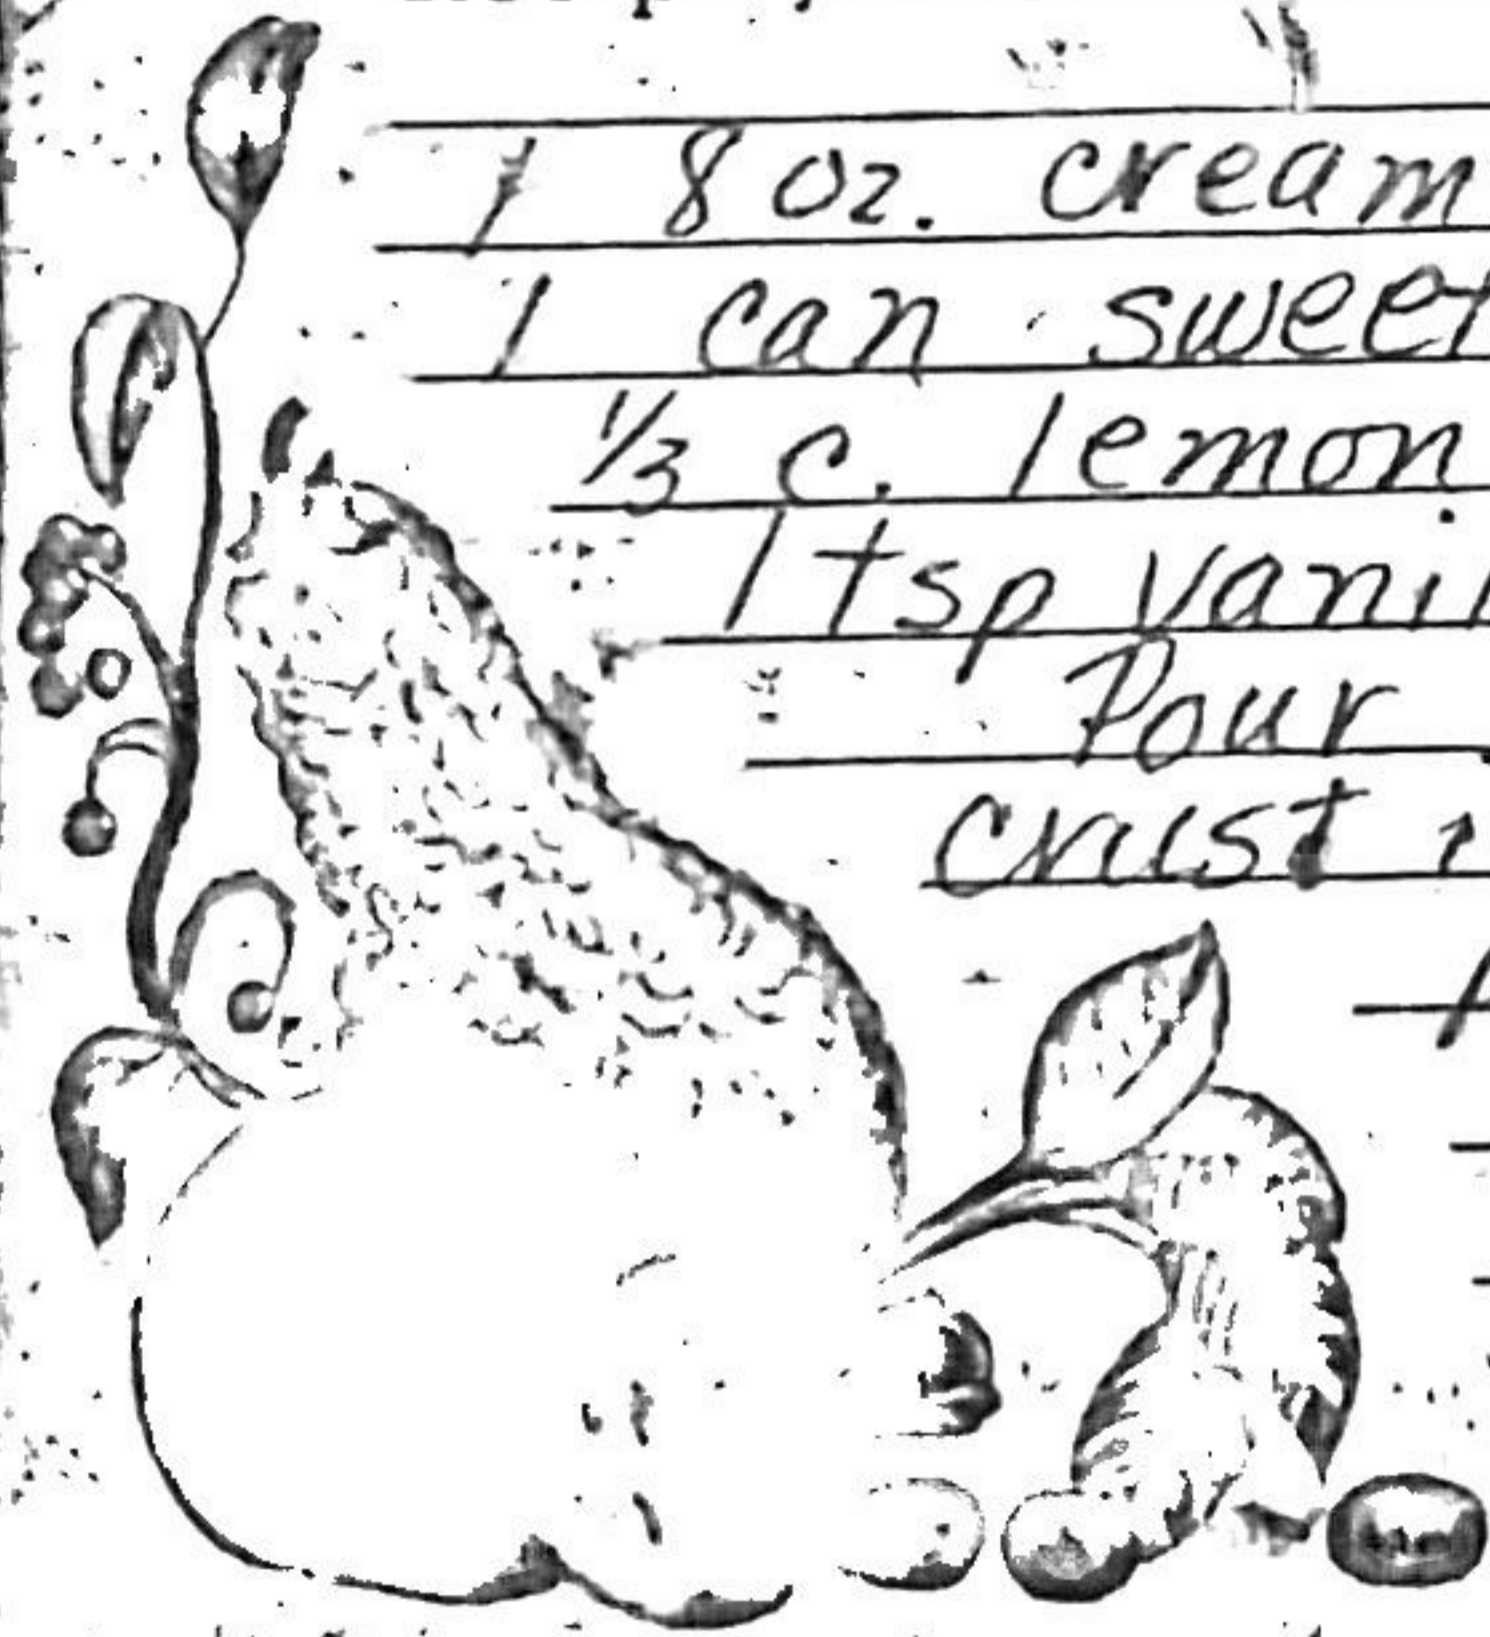 1 8 oz. cream
1 can sweet
1/3 c. lemon
1 tsp vanil
Pour
crust